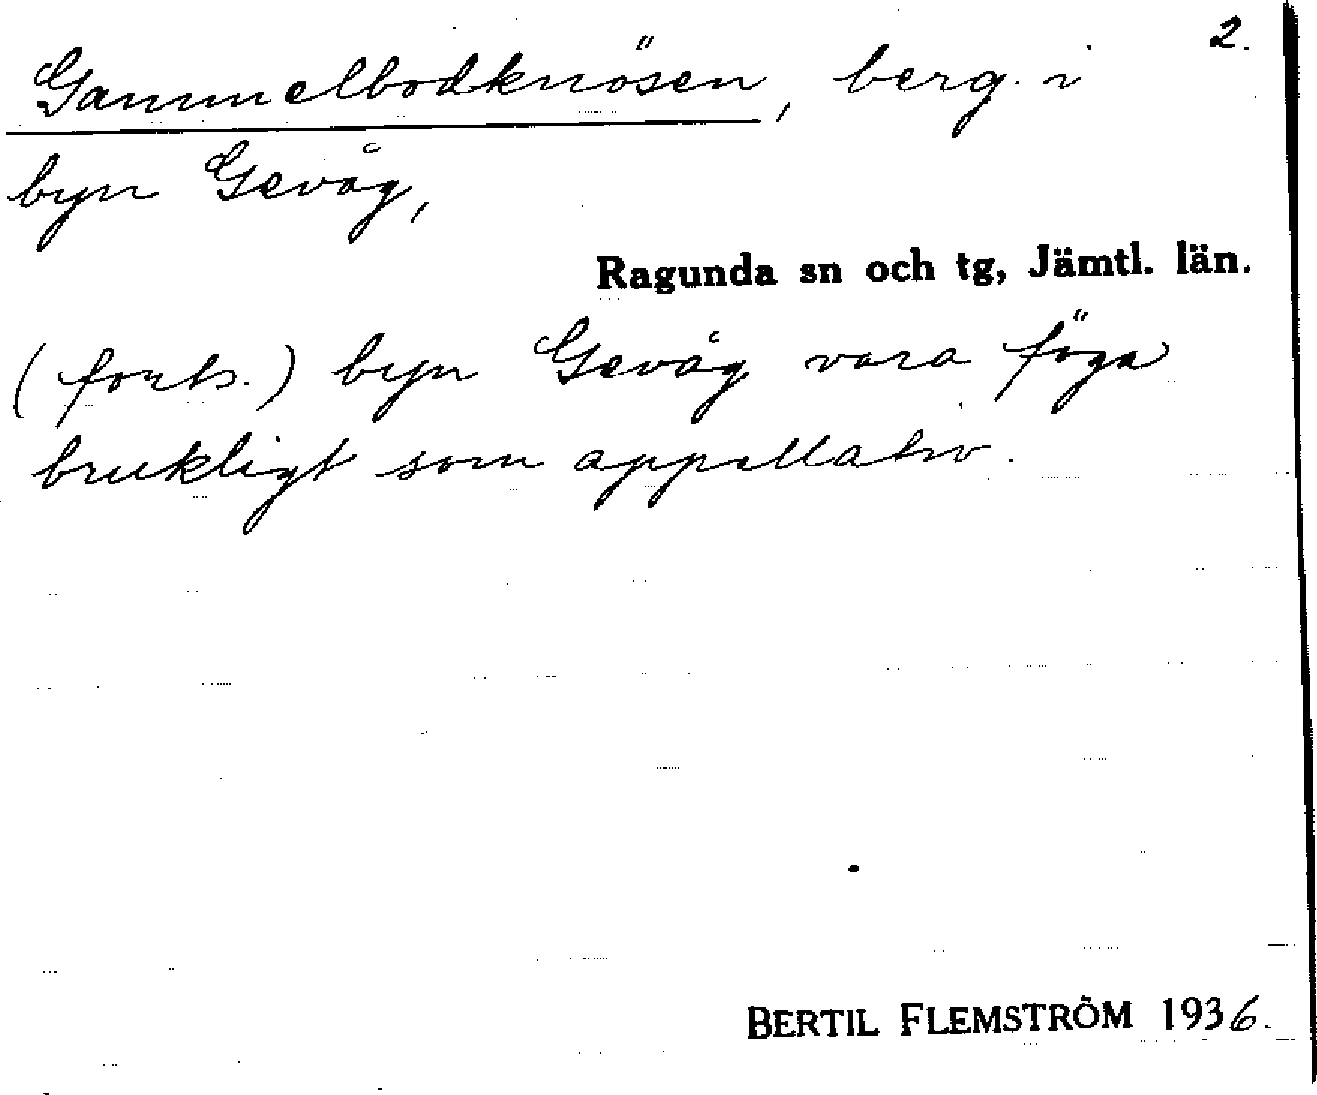 2.
Gammelbodknösen, berg i
byn Gevåg,
Ragunda sn och tg, Jämtl. län.
(forts.) byn Gevåg vara föga
brukligt som appellativ.
BERTIL FLEMSTRÖM 1936.